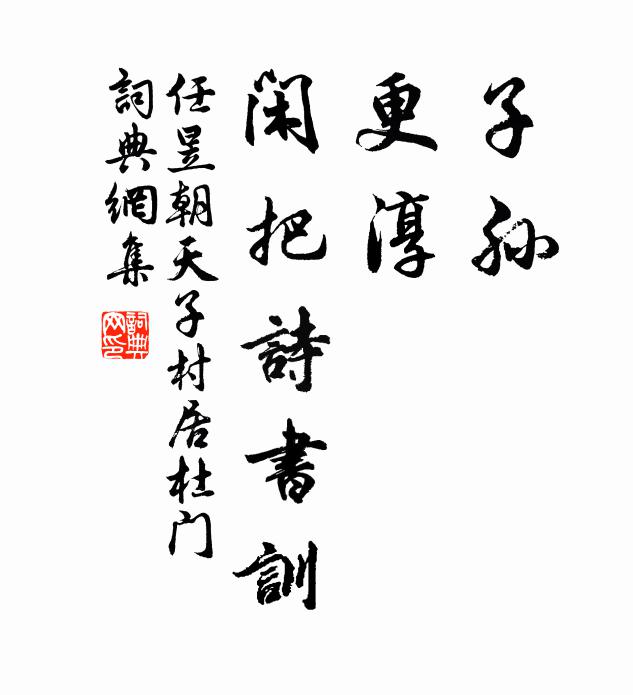 子孙
更淳
閑把詩書訓
任昱朝天子村居杜门
詞典網集
詞典
网印